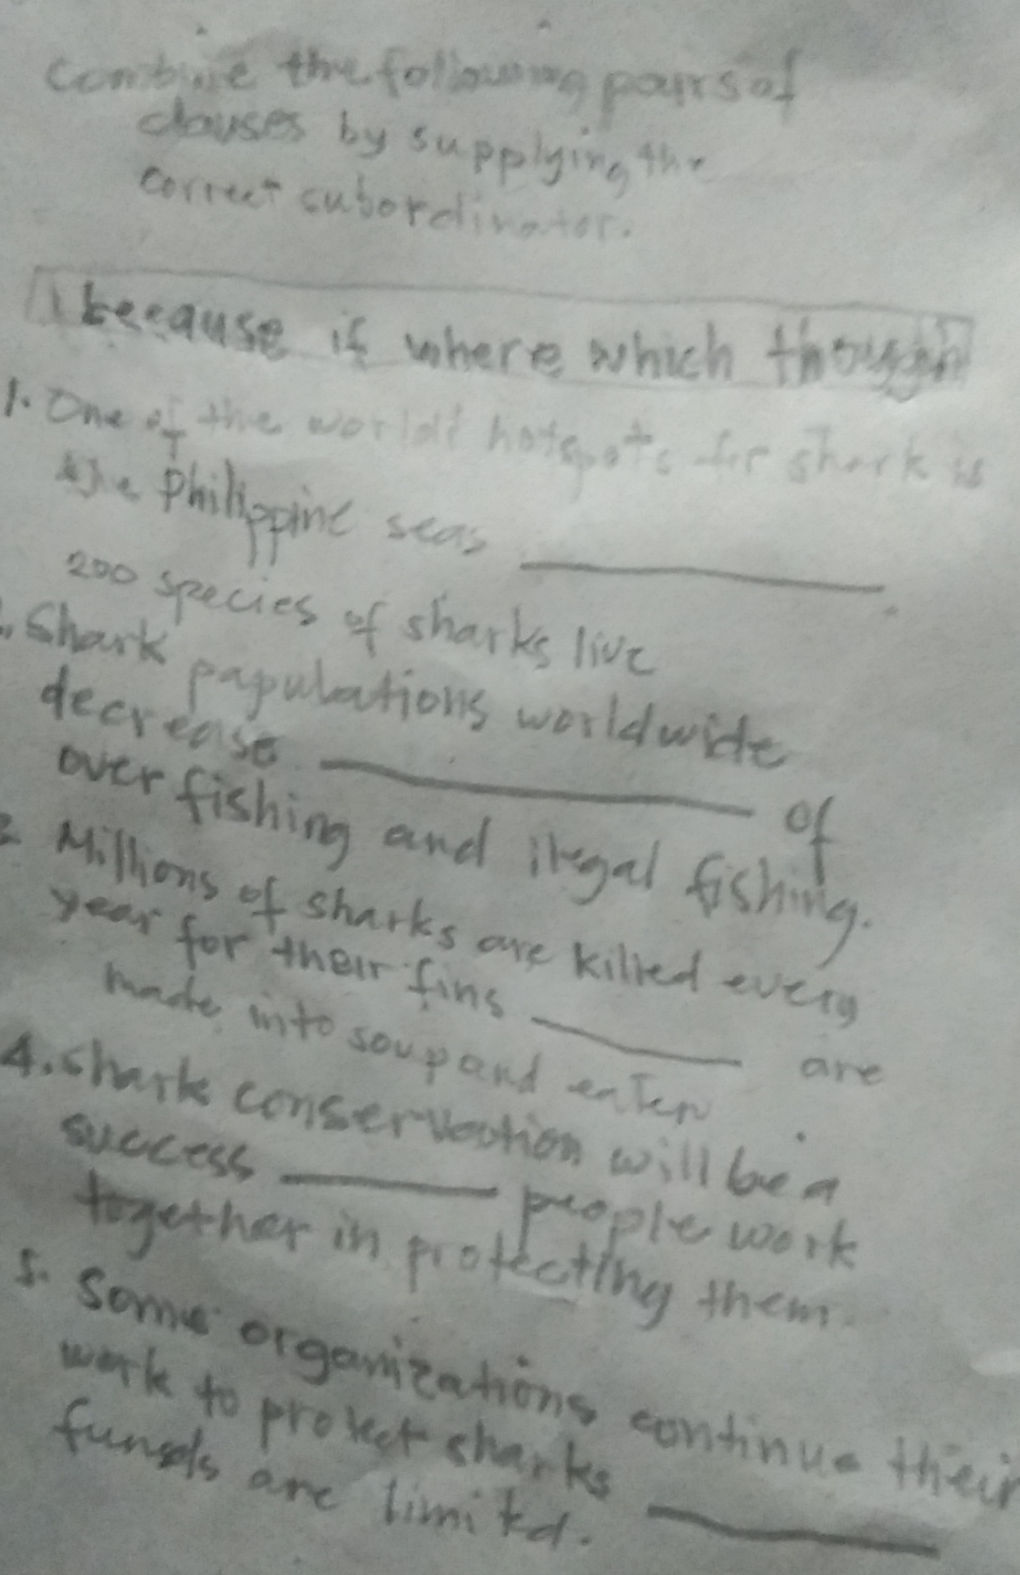 Combine the following pairs of
clauses by supplying the
correct subordinator.
because if where which though
1. One of the world's hotspots for shark is
the Philippine seas __________.
200 species of sharks live
2. Shark papulations worldwide
decrease __________ of
over fishing and ilegal fishing.
3. Millions of sharks are killed every
year for their fins ______ are
made into soup and eaten.
4. Shark conservation will be a
success ______ people work
together in protecting them.
5. Some organizations continue their
work to protect sharks __________
funds are limited.